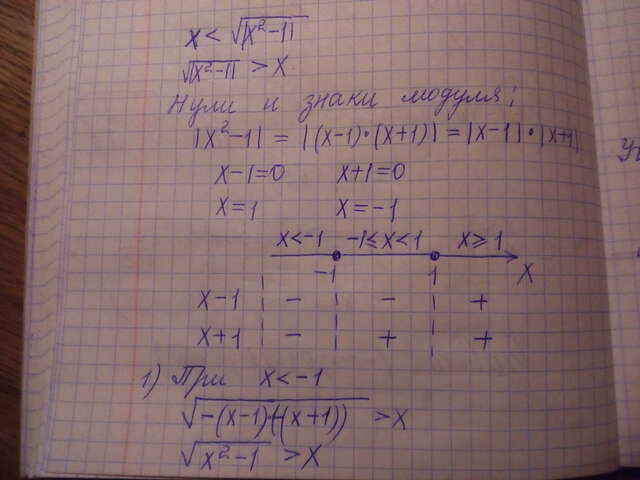 x < √|x²-1|
√|x²-1| > x
Нули и знаки модуля:
|x²-1| = |(x-1)·(x+1)| = |x-1|·|x+1|
x-1=0 x+1=0
x=1 x=-1
x<-1 -1≤x<1 x≥1
-1 1 x
x-1 - - +
x+1 - + +
1) При x<-1
√-(x-1)·(-(x+1)) > x
√x²-1 > x